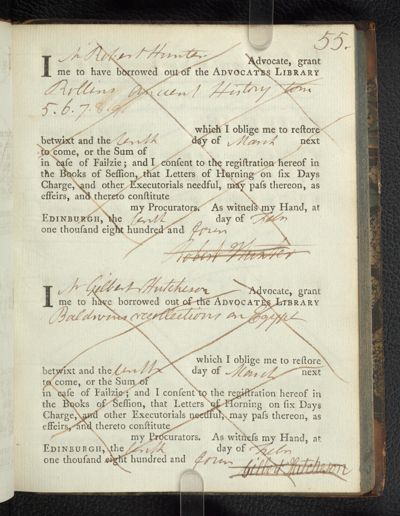 55.
I Mr Robert Hunter Advocate, grant
me to have borrowed out of the ADVOCATES LIBRARY
Rollins Ancient History tom
5. 6. 7. 8. 9.
which I oblige me to reſtore
betwixt and the tenth day of March next
to come, or the Sum of
in caſe of Failzie; and I conſent to the regiſtration hereof in
the Books of Seſſion, that Letters of Horning on ſix Days
Charge, and other Executorials needful, may paſs thereon, as
effeirs, and thereto conſtitute
my Procurators. As witneſs my Hand, at
EDINBURGH, the tenth day of Febr
one thouſand eight hundred and four
Robert Hunter
I Mr Gilbert Hutcheson Advocate, grant
me to have borrowed out of the ADVOCATES LIBRARY
Baldwins recollections on Egypt
which I oblige me to reſtore
betwixt and the tenth day of March next
to come, or the Sum of
in caſe of Failzie; and I conſent to the regiſtration hereof in
the Books of Seſſion, that Letters of Horning on ſix Days
Charge, and other Executorials needful, may paſs thereon, as
effeirs, and thereto conſtitute
my Procurators. As witneſs my Hand, at
EDINBURGH, the tenth day of Febr
one thouſand eight hundred and four
Gilbert Hutcheson